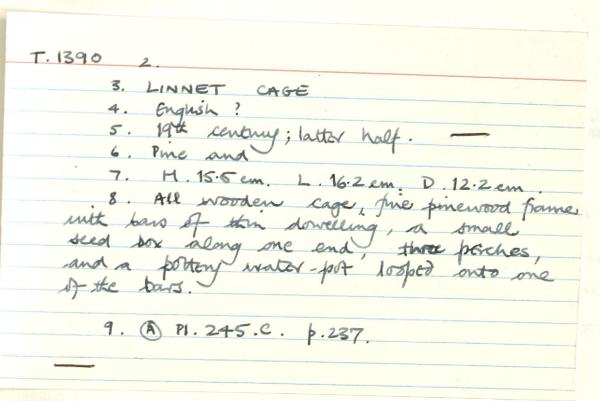 T. 1390 2.
3. LINNET CAGE
4. English ?
5. 19th century; latter half. —
6. Pine and
7. H. 15.5 cm. L. 16.2 cm. D. 12.2 cm.
8. All wooden cage, fine pinewood frame
with bars of thin dowelling, a small
seed box along one end, three perches,
and a pottery water-pot looped onto one
of the bars.
9. Ⓐ Pl. 245.C. p.237.